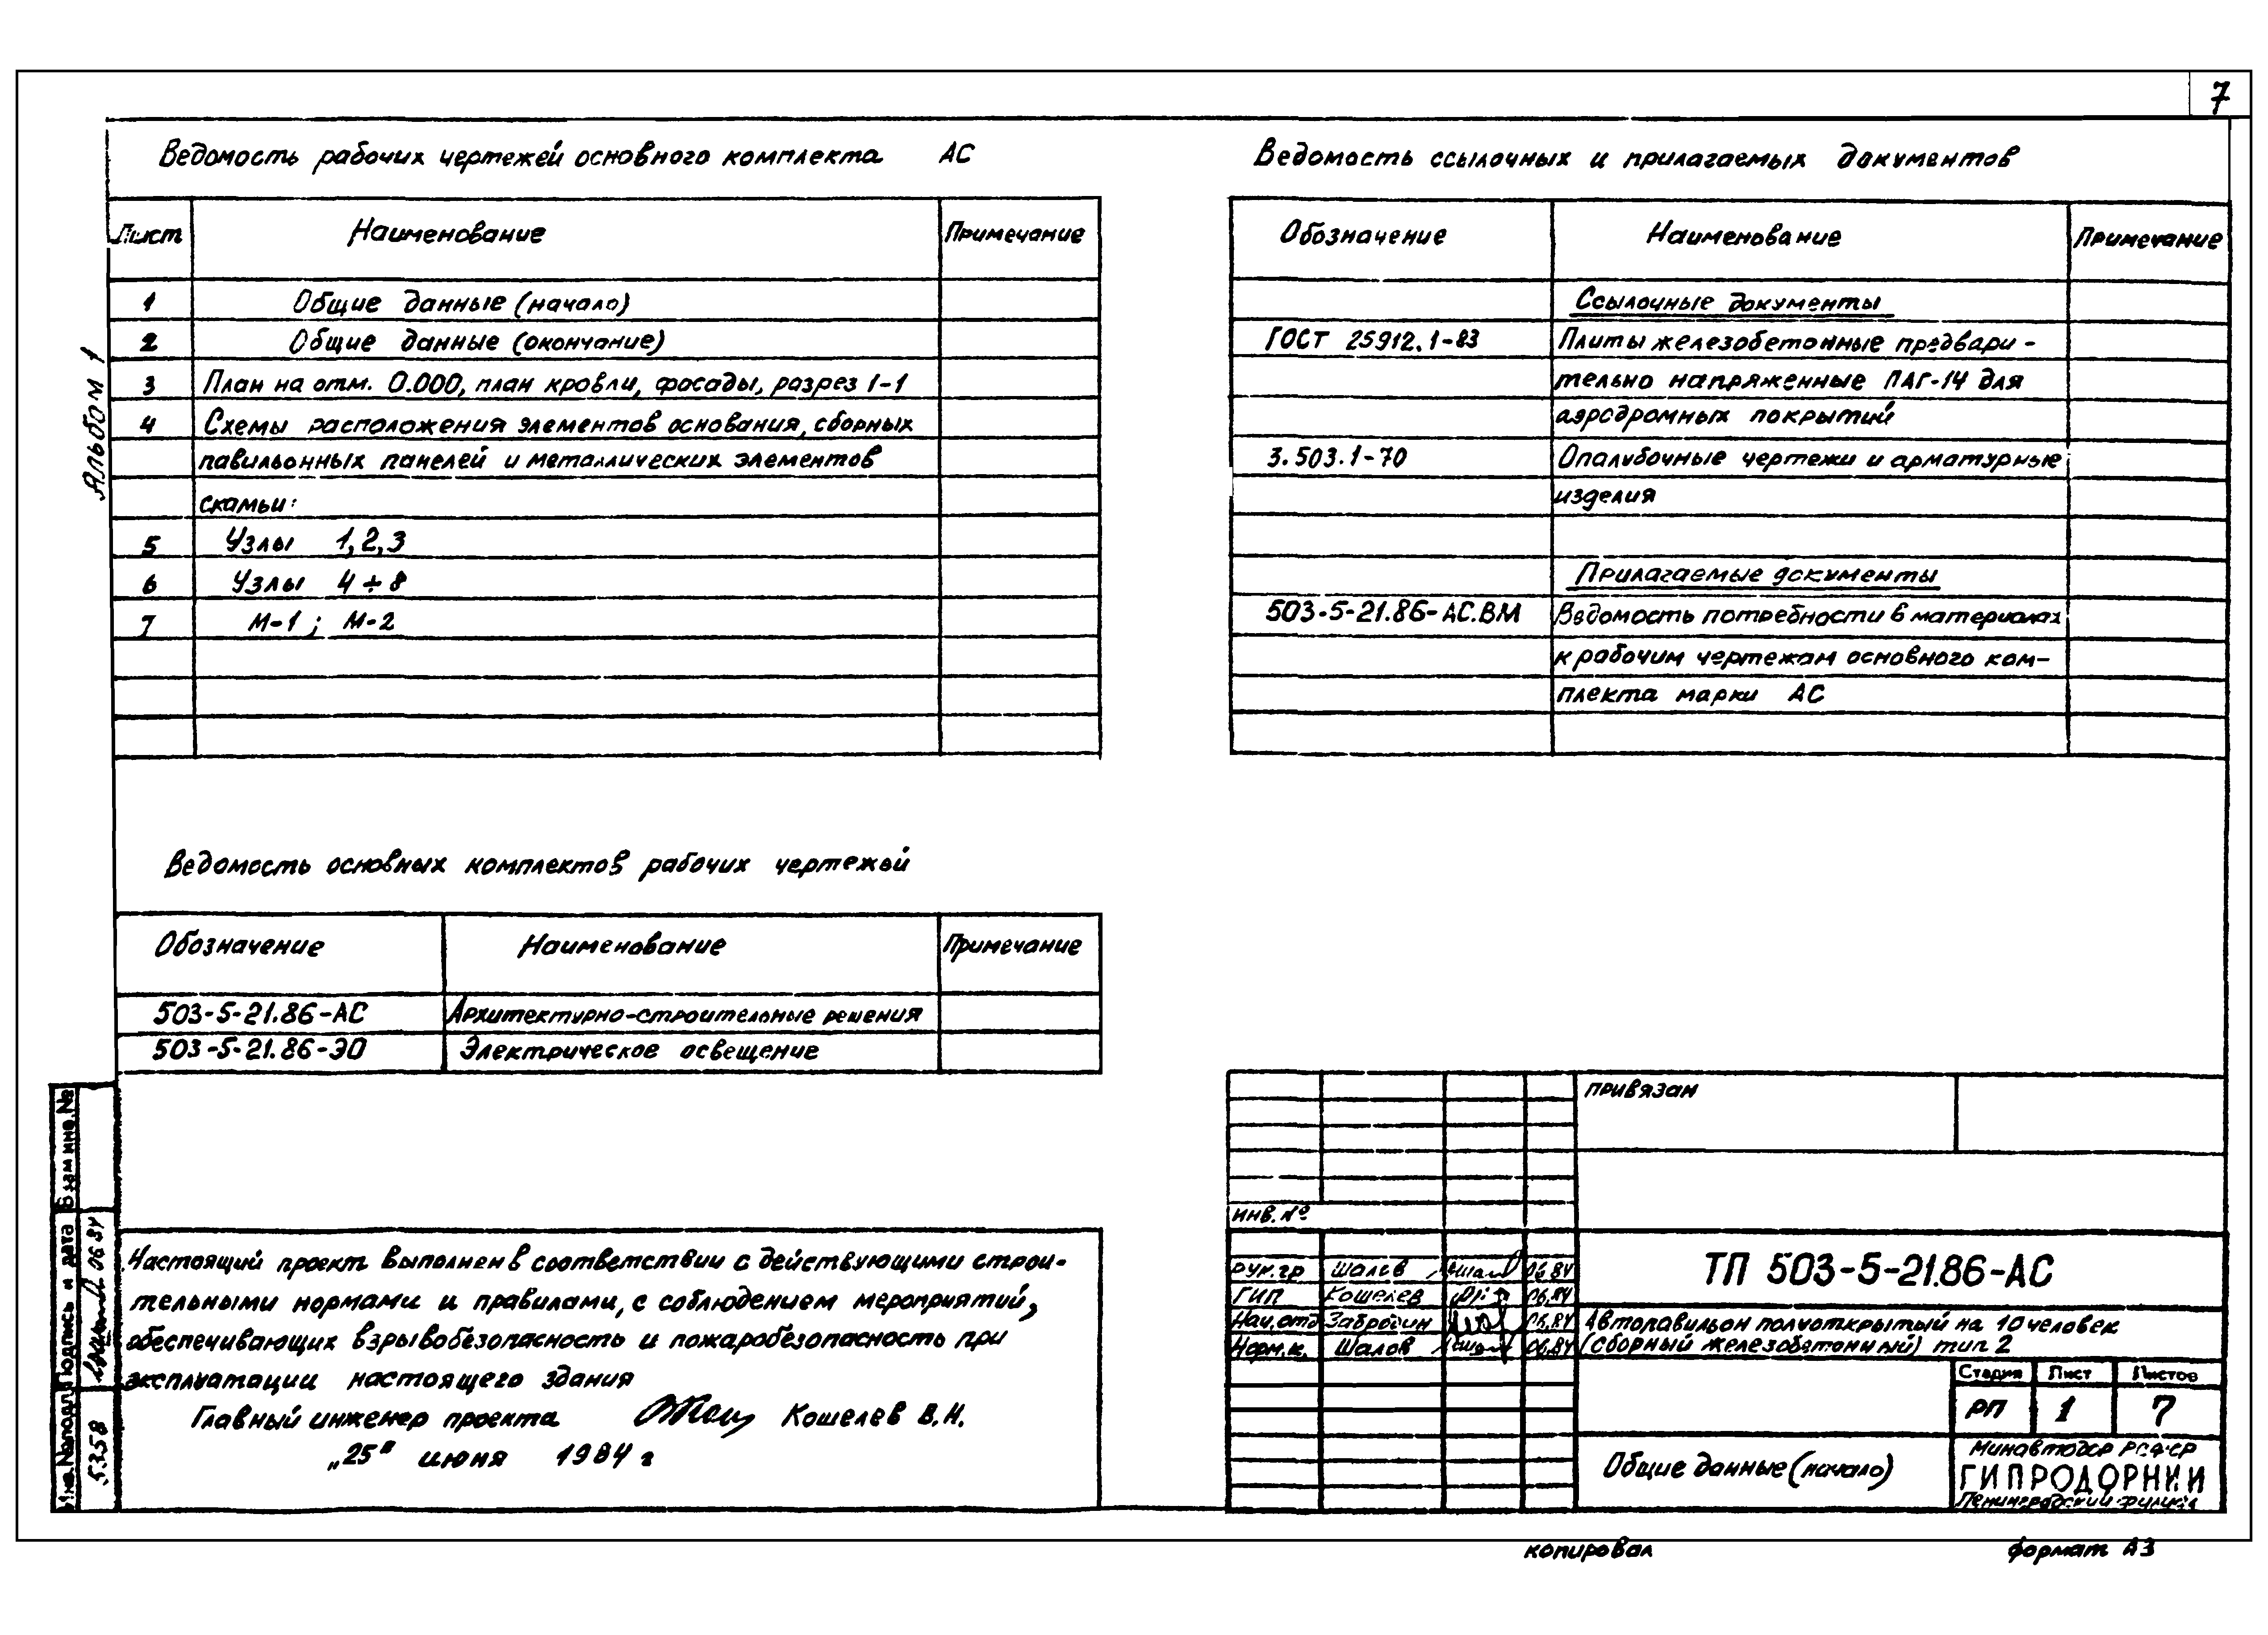 7
Альбом 1
Ведомость рабочих чертежей основного комплекта АС
Лист Наименование Примечание
1 Общие данные (начало)
2 Общие данные (окончание)
3 План на отм. 0.000, план кровли, фасады, разрез 1-1
4 Схемы расположения элементов основания, сборных
павильонных панелей и металлических элементов
скамьи:
5 Узлы 1,2,3
6 Узлы 4÷8
7 М-1; М-2
Ведомость ссылочных и прилагаемых документов
Обозначение Наименование Примечание
Ссылочные документы
ГОСТ 25912.1-83 Плиты железобетонные предвари-
тельно напряженные ПАГ-14 для
аэродромных покрытий
3.503.1-70 Опалубочные чертежи и арматурные
изделия
Прилагаемые документы
503-5-21.86-АС.ВМ Ведомость потребности в материалах
к рабочим чертежам основного ком-
плекта марки АС
Ведомость основных комплектов рабочих чертежей
Обозначение Наименование Примечание
503-5-21.86-АС Архитектурно-строительные решения
503-5-21.86-ЭО Электрическое освещение
Настоящий проект выполнен в соответствии с действующими строи-
тельными нормами и правилами, с соблюдением мероприятий,
обеспечивающих взрывобезопасность и пожаробезопасность при
эксплуатации настоящего здания
Главный инженер проекта Кошелев В.Н.
„25" июня 1984 г
Взам инв. №
Подпись и дата 06 84
Инв. № подл 5358
привязан
инв. №
Рук. гр Шалов 06.84
ГИП Кошелев 06.84
Нач. отд Забродин 06.84
Норм. к. Шалов 06.84
ТП 503-5-21.86-АС
Автопавильон полуоткрытый на 10 человек
(сборный железобетонный) тип 2
Стадия Лист Листов
РП 1 7
Общие данные (начало)
Минавтодор РСФСР
ГИПРОДОРНИИ
Ленинградский филиал
копировал формат А3